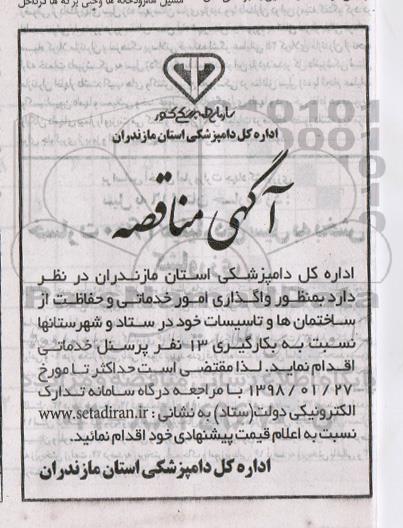 سازمان دامپزشکی کشور
اداره کل دامپزشکی استان مازندران
آگهی مناقصه
اداره کل دامپزشکی استان مازندران در نظر
دارد بمنظور واگذاری امور خدماتی و حفاظت از
ساختمان ها و تاسیسات خود در ستاد و شهرستانها
نسبت به بکارگیری ۱۳ نفر پرسنل خدماتی
اقدام نماید. لذا مقتضی است حداکثر تا مورخ
۱۳۹۸/۰۱/۲۷ با مراجعه درگاه سامانه تدارک
الکترونیکی دولت(ستاد) به نشانی : www.setadiran.ir
نسبت به اعلام قیمت پیشنهادی خود اقدام نمائید.
اداره کل دامپزشکی استان مازندران